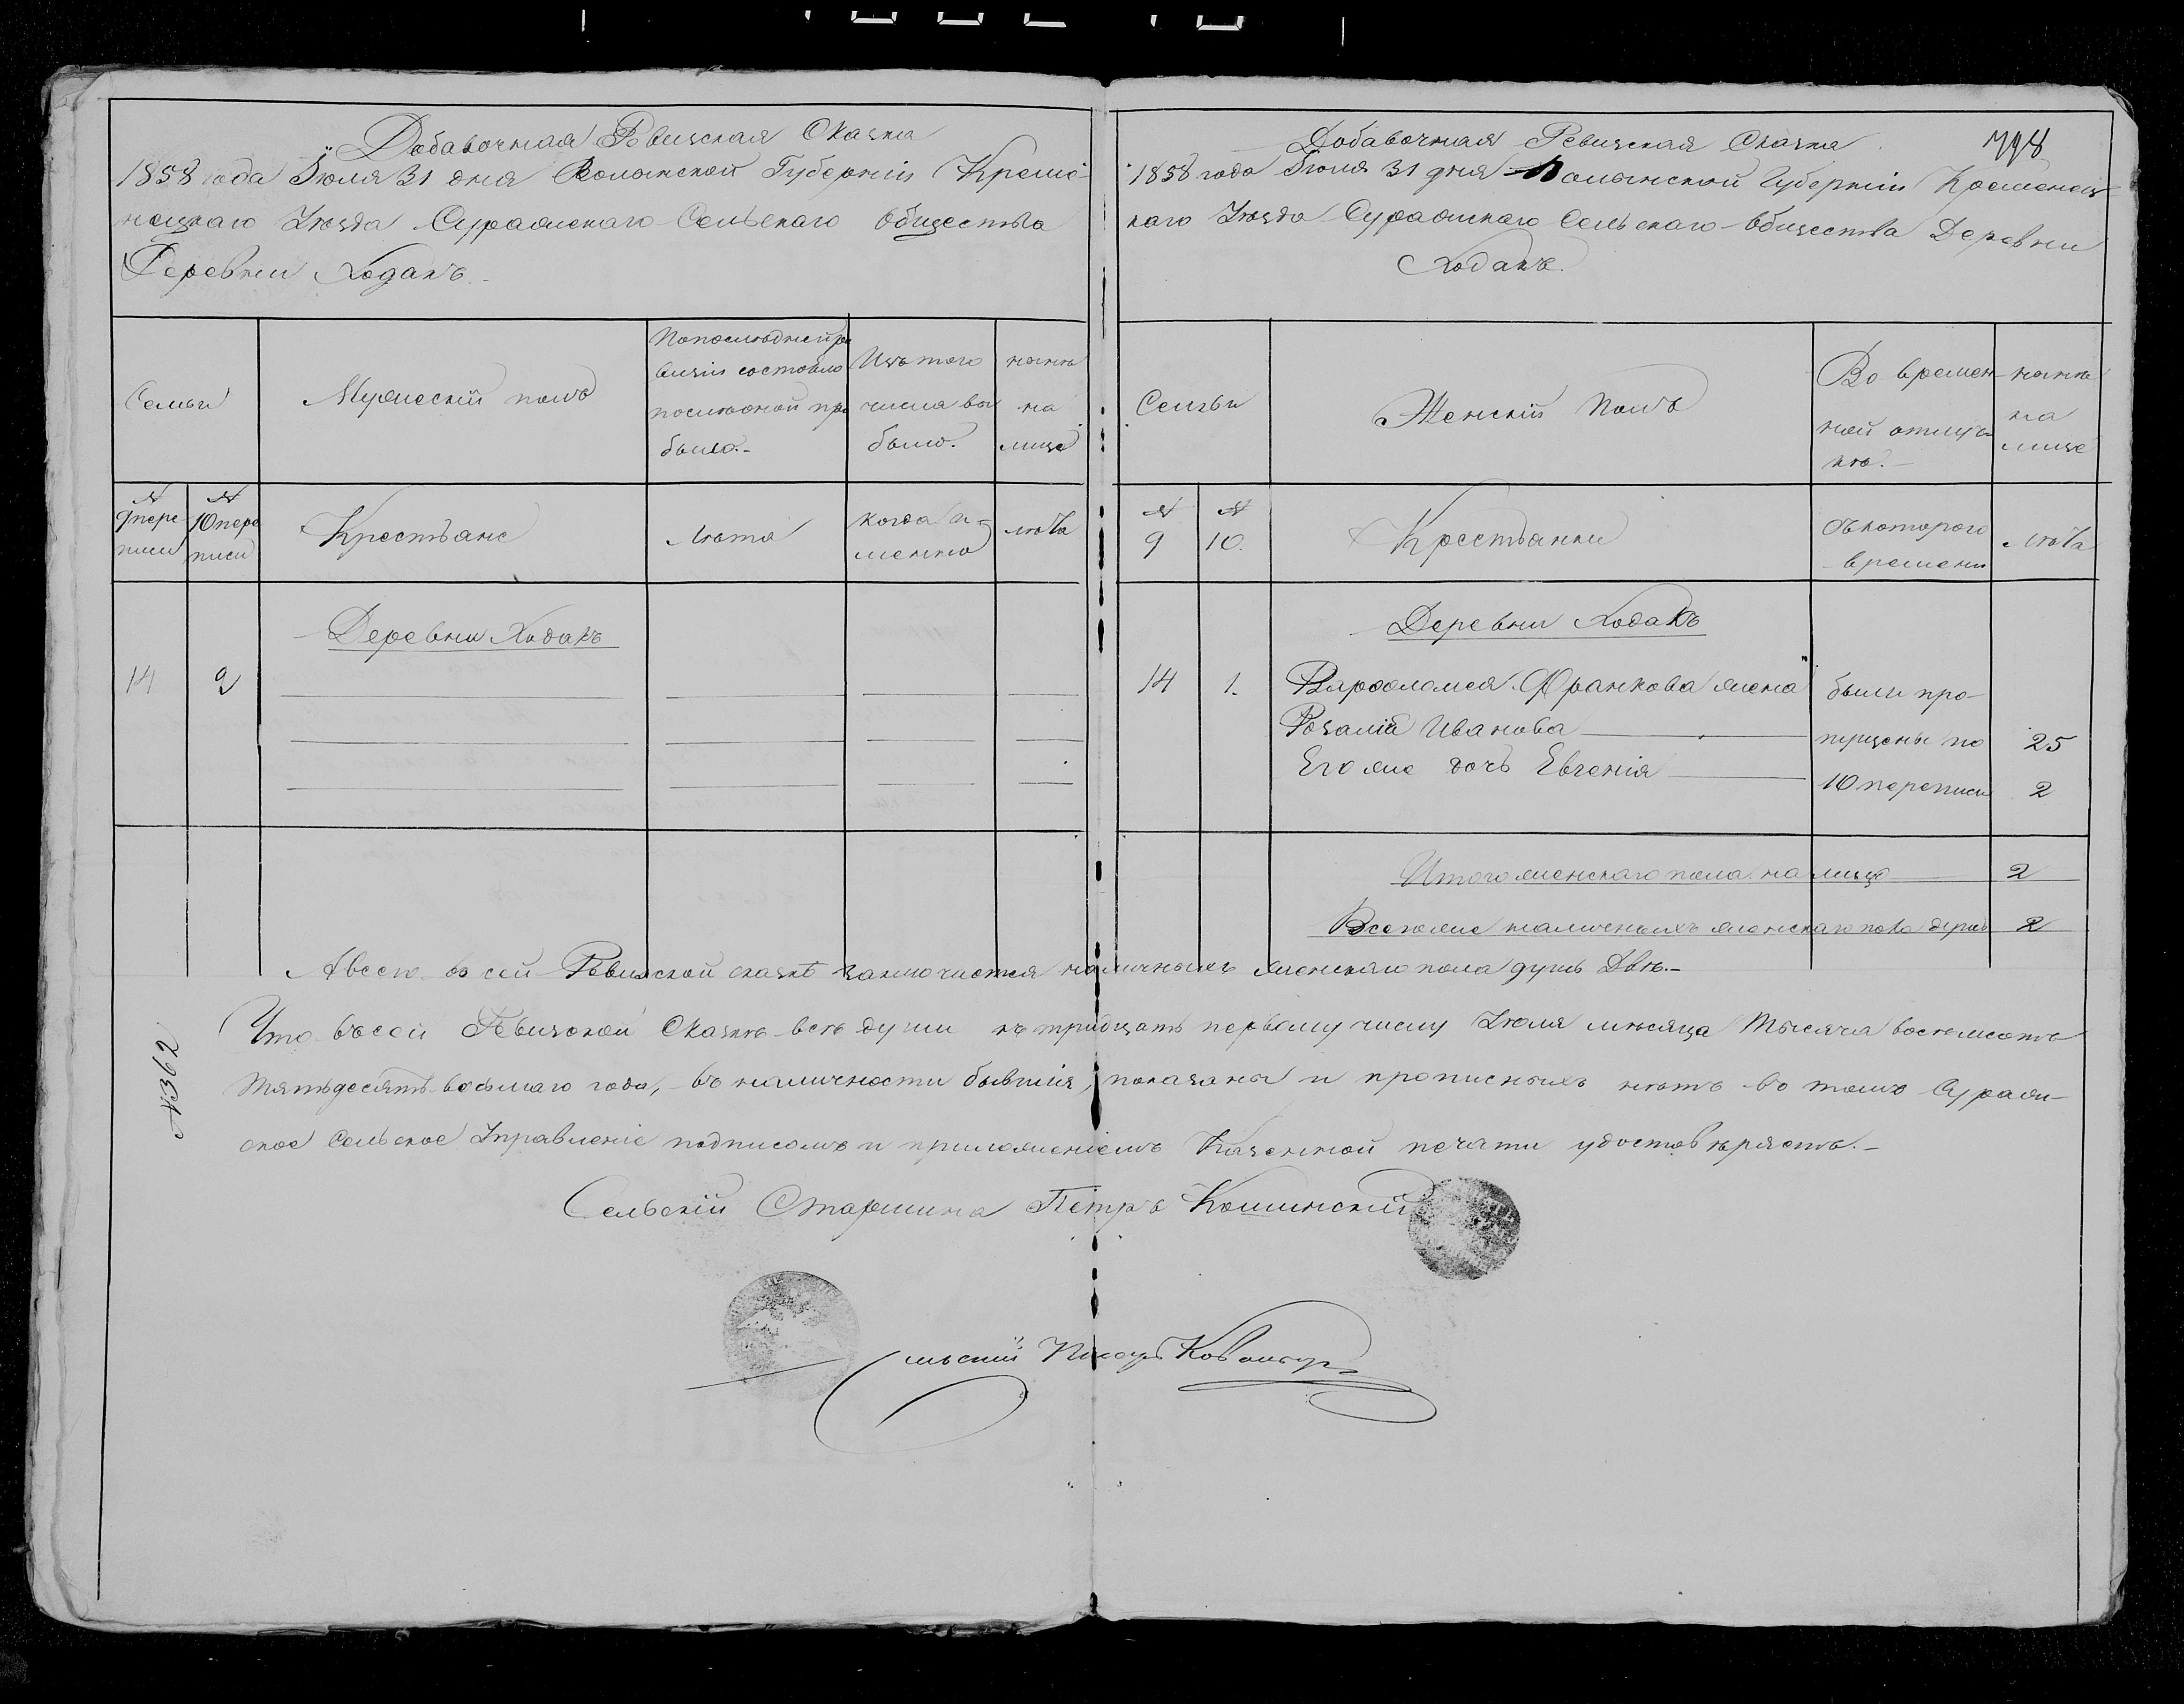 Добавочная Ревизская Сказка
1858 года Іюля 31 дня Волынской Губерніи Креме-
нецкаго Уѣзда Суражскаго Сельскаго Общества
Деревни Ходакъ.
Семьи
Мужескій полъ
По последней ре
визіи состояло
и после оной при
было.
Изъ того
числа вы
было.
нынѣ
на
лице
№
9 пере
писи
№
10 пере
писи
Крестьяне
лѣта
когда и-
менно
лѣта
Деревни Ходакъ
14
Добавочная Ревизская Сказка
798
1858 года Іюля 31 дня Волынской Губерніи Кременец-
каго Уѣзда Суражскаго Сельскаго Общества Деревни
Ходакъ.
Семьи
Женскій Полъ
Во времен-
ной отлуч-
кѣ.
нынѣ
на
лице
№
9
№
10.
Крестьянки
Съ котораго
времени
лѣта
Деревни Ходакъ
14 1. Варфоломея Франкова жена были про-
Розалія Иванова пущены по 25
Его же дочь Евгенія 10 переписи 2
Итого женскаго пола на лице 2
Всего же наличныхъ женскаго пола душъ 2
А всего въ сей Ревизской сказкѣ заключается наличныхъ женскаго пола душъ Двѣ.-
Что въ сей Ревизской Сказкѣ всѣ души къ тридцать первому числу Іюля мѣсяца Тысяча восемьсотъ
Пятьдесятъ восьмаго года, въ наличности бывшія, показаны и прописныхъ нѣтъ въ томъ Сураж-
ское Сельское Управленіе подписомъ и приложеніемъ Казенной печати удостовѣряетъ.-
№362
Сельскій Старшина Петръ Кошинскій
Сельскій Писарь